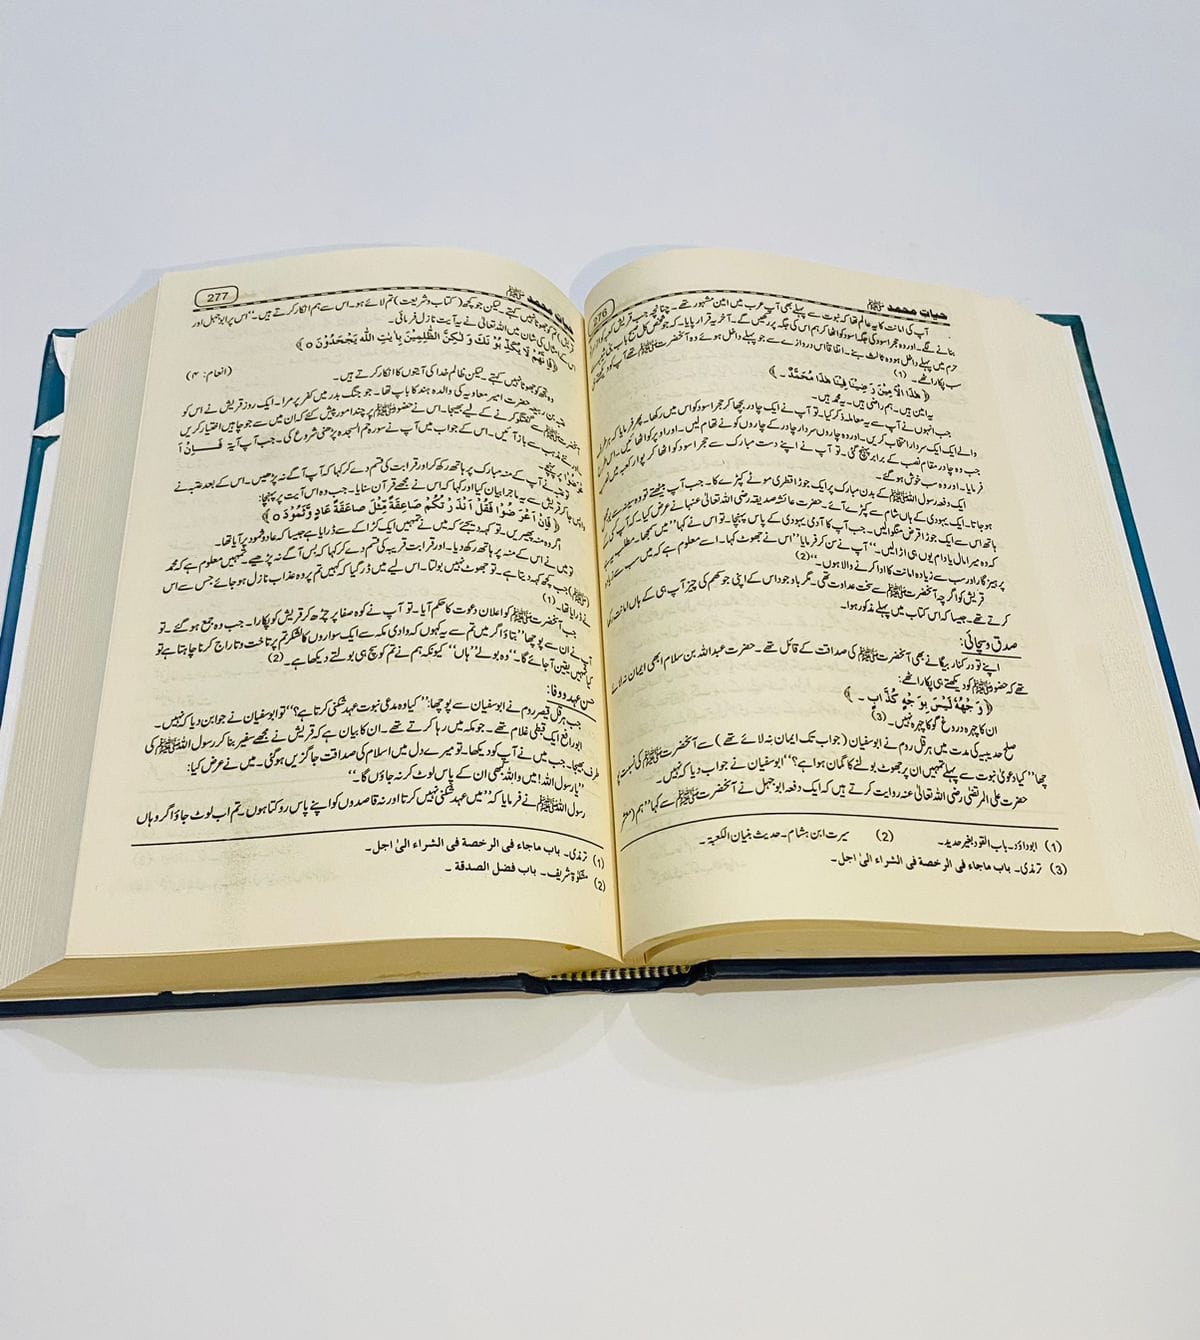 276
حیاتِ محمد ﷺ
آپ کی امانت کا یہ عالم تھا کہ نبوت سے پہلے بھی آپ عرب میں امین مشہور تھے۔ چنانچہ جب قریش کعبہ کو
بنانے لگے۔ اور وہ حجر اسود کی جگہ اسود کو اٹھا کر ہم اس کی جگہ پر رکھیں گے۔ آخر یہ قرار پایا۔ کہ جو شخص کل صبح باب بنی شیبہ سے
حرم میں پہلے داخل ہو وہ ثالث بنے۔ اتفاقاً اس دروازے سے جو پہلے داخل ہوئے وہ آنحضرت ﷺ تھے آپ کو دیکھتے ہی
سب پکار اٹھے۔ (۱)
﴿ هٰذَا الْاَمِيْنُ رَضِيْنَا هٰذَا مُحَمَّدٌ ۔ ﴾
یہ امین ہیں۔ ہم راضی ہیں۔ یہ محمد ہیں۔
جب انہوں نے آپ سے یہ معاملہ ذکر کیا۔ تو آپ نے ایک چادر بچھا کر حجر اسود کو اس میں رکھا۔ پھر فرمایا کہ ہر طرف
والے ایک ایک سردار انتخاب کریں۔ اور وہ چاروں سردار چادر کے چاروں کونے تھام لیں۔ اور اوپر کو اٹھائیں۔ اس طرح
جب وہ چادر مقام نصب کے برابر پہنچ گئی۔ تو آپ نے اپنے دست مبارک سے حجر اسود کو اٹھا کر دیوار کعبہ میں نصب
فرمایا۔ اور وہ سب خوش ہو گئے۔
ایک دفعہ رسول اللہ ﷺ کے بدن مبارک پر ایک جوڑا قطری موٹے کپڑے کا۔ جب آپ بیٹھتے تو وہ پسینہ سے بوجھل
ہو جاتا۔ ایک یہودی کے ہاں شام سے کپڑے آئے۔ حضرت عائشہ صدیقہ رضی اللہ تعالیٰ عنہا نے عرض کیا۔ کہ آپ کسی کے
ہاتھ اس سے ایک جوڑا قرض منگوا لیں۔ جب آپ کا آدمی یہودی کے پاس پہنچا۔ تو اس نے کہا ’’میں سمجھا۔ مطلب یہ ہے
کہ وہ میرا مال یا دام یوں ہی اڑا لیں۔‘‘ آپ نے سن کر فرمایا ’’اس نے جھوٹ کہا۔ اسے معلوم ہے کہ میں سب سے زیادہ
پرہیزگار اور سب سے زیادہ امانت کا ادا کرنے والا ہوں۔‘‘ (2)
قریش کو اگرچہ آنحضرت ﷺ سے سخت عداوت تھی۔ مگر باوجود اس کے اپنی جوکھم کی چیز آپ ہی کے ہاں امانت رکھا
کرتے تھے۔ جیسا کہ اس کتاب میں پہلے مذکور ہوا۔
صدق و سچائی:
اپنے تو در کنار بیگانے بھی آنحضرت ﷺ کی صداقت کے قائل تھے۔ حضرت عبداللہ بن سلام ابھی ایمان نہ لائے
تھے کہ حضور ﷺ کو دیکھتے ہی پکار اٹھے:
﴿ وَجْهُهٗ لَيْسَ بِوَجْهِ كَذَّابٍ ۔ ﴾
ان کا چہرہ دروغ گو کا چہرہ نہیں۔ (3)
صلح حدیبیہ کی مدت میں ہرقل روم نے ابوسفیان (جو اب تک ایمان نہ لائے تھے) سے آنحضرت ﷺ کی نسبت پو
چھا ’’کیا دعوئ نبوت سے پہلے تمہیں ان پر جھوٹ بولنے کا گمان ہوا ہے؟‘‘ ابوسفیان نے جواب دیا کہ نہیں۔
حضرت علی المرتضیٰ رضی اللہ تعالیٰ عنہ روایت کرتے ہیں کہ ایک دفعہ ابوجہل نے آنحضرت ﷺ سے کہا ’’ہم (معشر
(1) ابوداؤد۔ باب القود بغیر حدید۔ (2) سیرت ابن ہشام۔ حدیث بنیان الکعبۃ۔
(3) ترمذی۔ باب ماجاء فی الرخصة فی الشراء الیٰ اجل۔
277
حیاتِ محمد ﷺ
کو جھوٹا نہیں کہتے۔ لیکن جو کچھ (کتاب و شریعت) تم لائے ہو۔ اس سے ہم انکار کرتے ہیں۔‘‘ اس پر ابوجہل اور
اس کے امثال کی شان میں اللہ تعالیٰ نے یہ آیت نازل فرمائی۔
﴿ فَاِنَّهُمْ لَا يُكَذِّبُوْنَكَ وَلٰكِنَّ الظّٰلِمِيْنَ بِاٰيٰتِ اللّٰهِ يَجْحَدُوْنَ ٥ ﴾
(انعام: ۴)
وہ تجھ کو جھوٹا نہیں کہتے۔ لیکن ظالم خدا کی آیتوں کا انکار کرتے ہیں۔
عتبہ بن ربیعہ حضرت امیر معاویہ کی والدہ ہند کا باپ تھا۔ جو جنگ بدر میں کفر پر مرا۔ ایک روز قریش نے اس کو
آنحضرت ﷺ سے گفتگو کرنے کے لیے بھیجا۔ اس نے حضور ﷺ پر چند امور پیش کئے کہ ان میں سے جو چاہیں اختیار کریں
اور نئے مذہب سے باز آئیں۔ اس کے جواب میں آپ نے سورہ حم السجدہ پڑھنی شروع کی۔ جب آپ آیۃ فَاِنْ اَ
عْرَضُوْا پر پہنچے۔
تو عتبہ نے آپ کے منہ مبارک پر ہاتھ رکھ کر اور قرابت کی قسم دے کر کہا کہ آپ آگے نہ پڑھیں۔ اس کے بعد عتبہ نے
واپس جا کر قریش سے یہ ماجرا بیان کیا اور کہا کہ اس نے مجھے قرآن سنایا۔ جب وہ اس آیت پر پہنچا:
﴿ فَاِنْ اَعْرَضُوْا فَقُلْ اَنْذَرْتُكُمْ صَاعِقَةً مِّثْلَ صَاعِقَةِ عَادٍ وَّثَمُوْدَ ٥ ﴾
اگر وہ منہ پھیریں۔ تو کہہ دیجئے کہ میں نے تمہیں ایک کڑاکے سے ڈرایا ہے جیسا کہ عاد و ثمود پر آیا تھا۔
تو میں نے اس کے منہ پر ہاتھ رکھ دیا۔ اور قرابت قریبہ کی قسم دے کر کہا کہ بس آگے نہ پڑھیے۔ تمہیں معلوم ہے کہ محمد
(ﷺ) جب کچھ کہہ دیتا ہے۔ تو جھوٹ نہیں بولتا۔ اس لیے میں ڈر گیا کہ کہیں تم پر وہ عذاب نازل ہو جائے جس سے اس
نے ڈرایا تھا۔ (1)
جب آنحضرت ﷺ کو اعلان دعوت کا حکم آیا۔ تو آپ نے کوہ صفا پر چڑھ کر قریش کو پکارا۔ جب وہ جمع ہو گئے۔ تو
آپ نے ان سے پوچھا ’’بتاؤ اگر میں تم سے یہ کہوں کہ وادی مکہ سے ایک سواروں کا لشکر تم پر تاخت و تاراج کرنا چاہتا ہے تو
کیا تمہیں یقین آ جائے گا۔‘‘ وہ بولے ’’ہاں‘‘ کیونکہ ہم نے تم کو سچ ہی بولتے دیکھا ہے۔ (2)
حسن عہد و وفا:
جب ہرقل قیصر روم نے ابوسفیان سے پوچھا: ’’کیا وہ مدعی نبوت عہد شکنی کرتا ہے؟‘‘ تو ابوسفیان نے جواب دیا کہ نہیں۔
ابورافع ایک قبطی غلام تھے۔ جو مکہ میں رہا کرتے تھے۔ ان کا بیان ہے کہ قریش نے مجھے سفیر بنا کر رسول اللہ ﷺ کی
طرف بھیجا۔ جب میں نے آپ کو دیکھا۔ تو میرے دل میں اسلام کی صداقت جاگزیں ہو گئی۔ میں نے عرض کیا:
’’یا رسول اللہ! میں واللہ بھی ان کے پاس لوٹ کر نہ جاؤں گا۔‘‘
رسول اللہ ﷺ نے فرمایا کہ ’’میں عہد شکنی نہیں کرتا اور نہ قاصدوں کو اپنے پاس روکتا ہوں۔ تم اب لوٹ جاؤ اگر وہاں
(1) ترمذی۔ باب ماجاء فی الرخصة فی الشراء الیٰ اجل۔
(2) مشکوٰۃ شریف۔ باب فضل الصدقة ۔